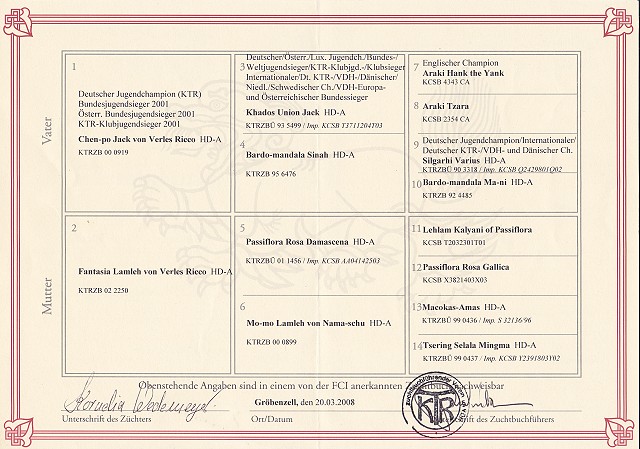 Vater
1
Deutscher Jugendchampion (KTR)
Bundesjugendsieger 2001
Österr. Bundesjugendsieger 2001
KTR-Klubjugendsieger 2001
Chen-po Jack von Verles Ricco HD-A
KTRZB 00 0919
3
Deutscher/Österr./Lux. Jugendch./Bundes-/
Weltjugendsieger/KTR-Klubjgd.-/Klubsieger
Internationaler/Dt. KTR-/VDH-/Dänischer/
Niedl./Schwedischer Ch./VDH-Europa-
und Österreichischer Bundessieger
Khados Union Jack HD-A
KTRZBÜ 93 5499 / Imp. KCSB T3711204T03
4
Bardo-mandala Sinah HD-A
KTRZB 95 6476
7 Englischer Champion
Araki Hank the Yank
KCSB 4343 CA
8
Araki Tzara
KCSB 2354 CA
9 Deutscher Jugendchampion/Internationaler/
Deutscher KTR-/VDH- und Dänischer Ch.
Silgarhi Varius HD-A
KTRZBÜ 90 3318 / Imp. KCSB Q2429801Q02
10 Bardo-mandala Ma-ni HD-A
KTRZB 92 4485
Mutter
2
Fantasia Lamleh von Verles Ricco HD-A
KTRZB 02 2250
5
Passiflora Rosa Damascena HD-A
KTRZBÜ 01 1456 / Imp. KCSB AA04142503
6
Mo-mo Lamleh von Nama-schu HD-A
KTRZB 00 0899
11 Lehlam Kalyani of Passiflora
KCSB T2032301T01
12 Passiflora Rosa Gallica
KCSB X3821403X03
13 Macokas-Amas HD-A
KTRZBÜ 99 0436 / Imp. S 32136/96
14 Tsering Selala Mingma HD-A
KTRZBÜ 99 0437 / Imp. KCSB Y2391803Y02
Obenstehende Angaben sind in einem von der FCI anerkannten
Kornelia
Gröbenzell, den 20.03.2008
KTR
Unterschrift des Züchters
Ort/Datum
Unterschrift des Zuchtbuchführers